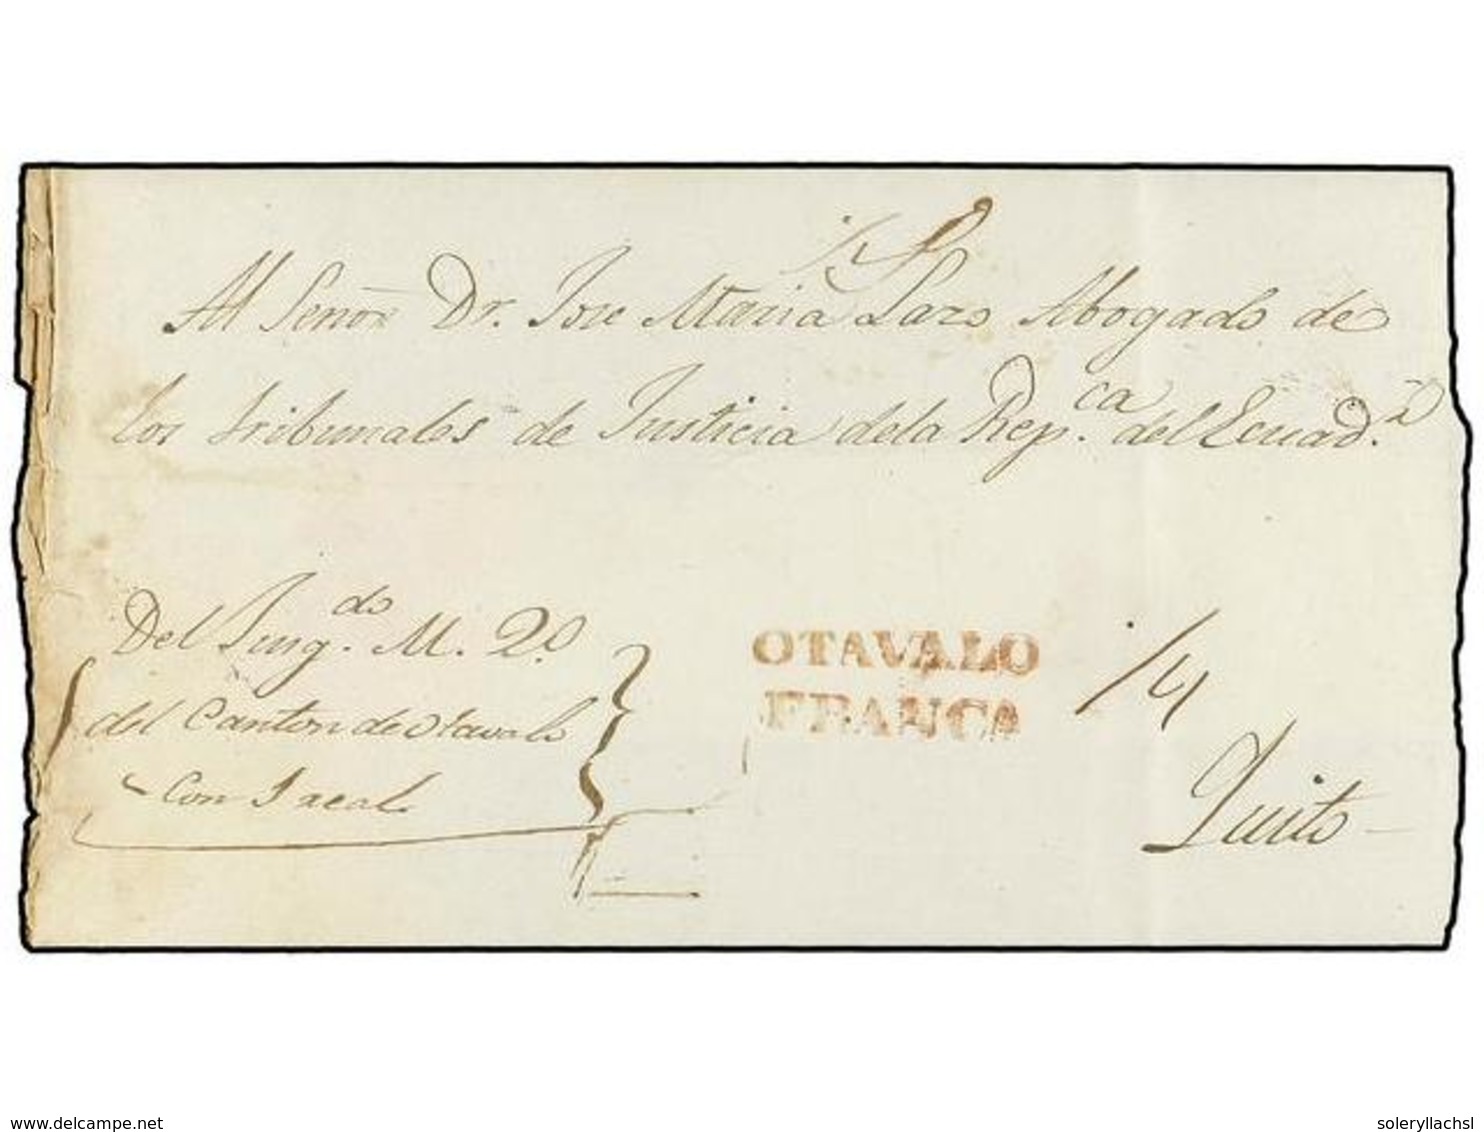 Al Señor Dr. Jose Maria Laso Abogado de
los tribunales de Justicia dela Rep.ca del Ecuad.r
Del Juzg.do M. 2.o
del Canton de Otavalo
Con 1 real
OTAVALO
FRANCA
Quito
delcampe.net
soleryllachsl